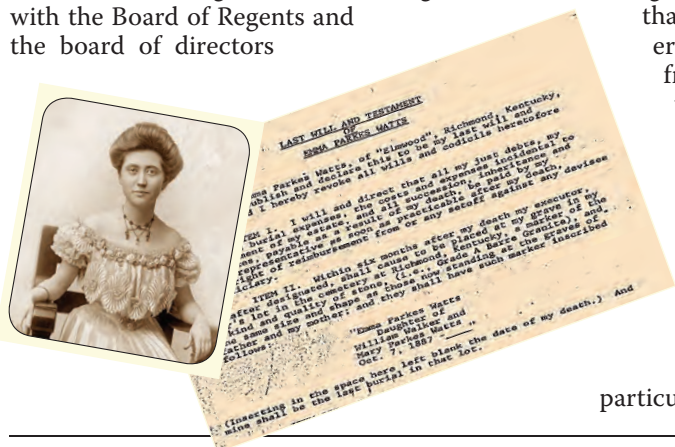 with the Board of Regents and
the board of directors
tha
er
fr
particu
LAST WILL AND TESTAMENT
OF
EMMA PARKES WATTS
Emma Parkes Watts, of "Elmwood", Richmond, Kentucky,
publish and declare this to be my last will and
I hereby revoke all wills and codicils heretofore
ITEM I. I will and direct that all my just debts, my
burial expenses, and costs and expenses incidental to
of my estate, and all succession, inheritance and
payable as a result of my death, be paid by my
representative as soon as practicable after my death,
right of reimbursement from or any setoff against any devisee
ITEM II. Within six months after my death my executor,
after designated, shall cause to be placed at my grave in my
lot in the cemetery at Richmond, Kentucky, a marker of the
kind and quality of stone (i.e., Grade A Barre Granite), and
same size and shape as those now standing at the graves of
father and my mother; and they shall have such marker inscribed
follows:
"Emma Parkes Watts
Daughter of
William Walker and
Mary Parkes Watts
Oct. 7, 1887 "
(Inserting in the space here left blank the date of my death.) And
mine shall be the last burial in that lot.